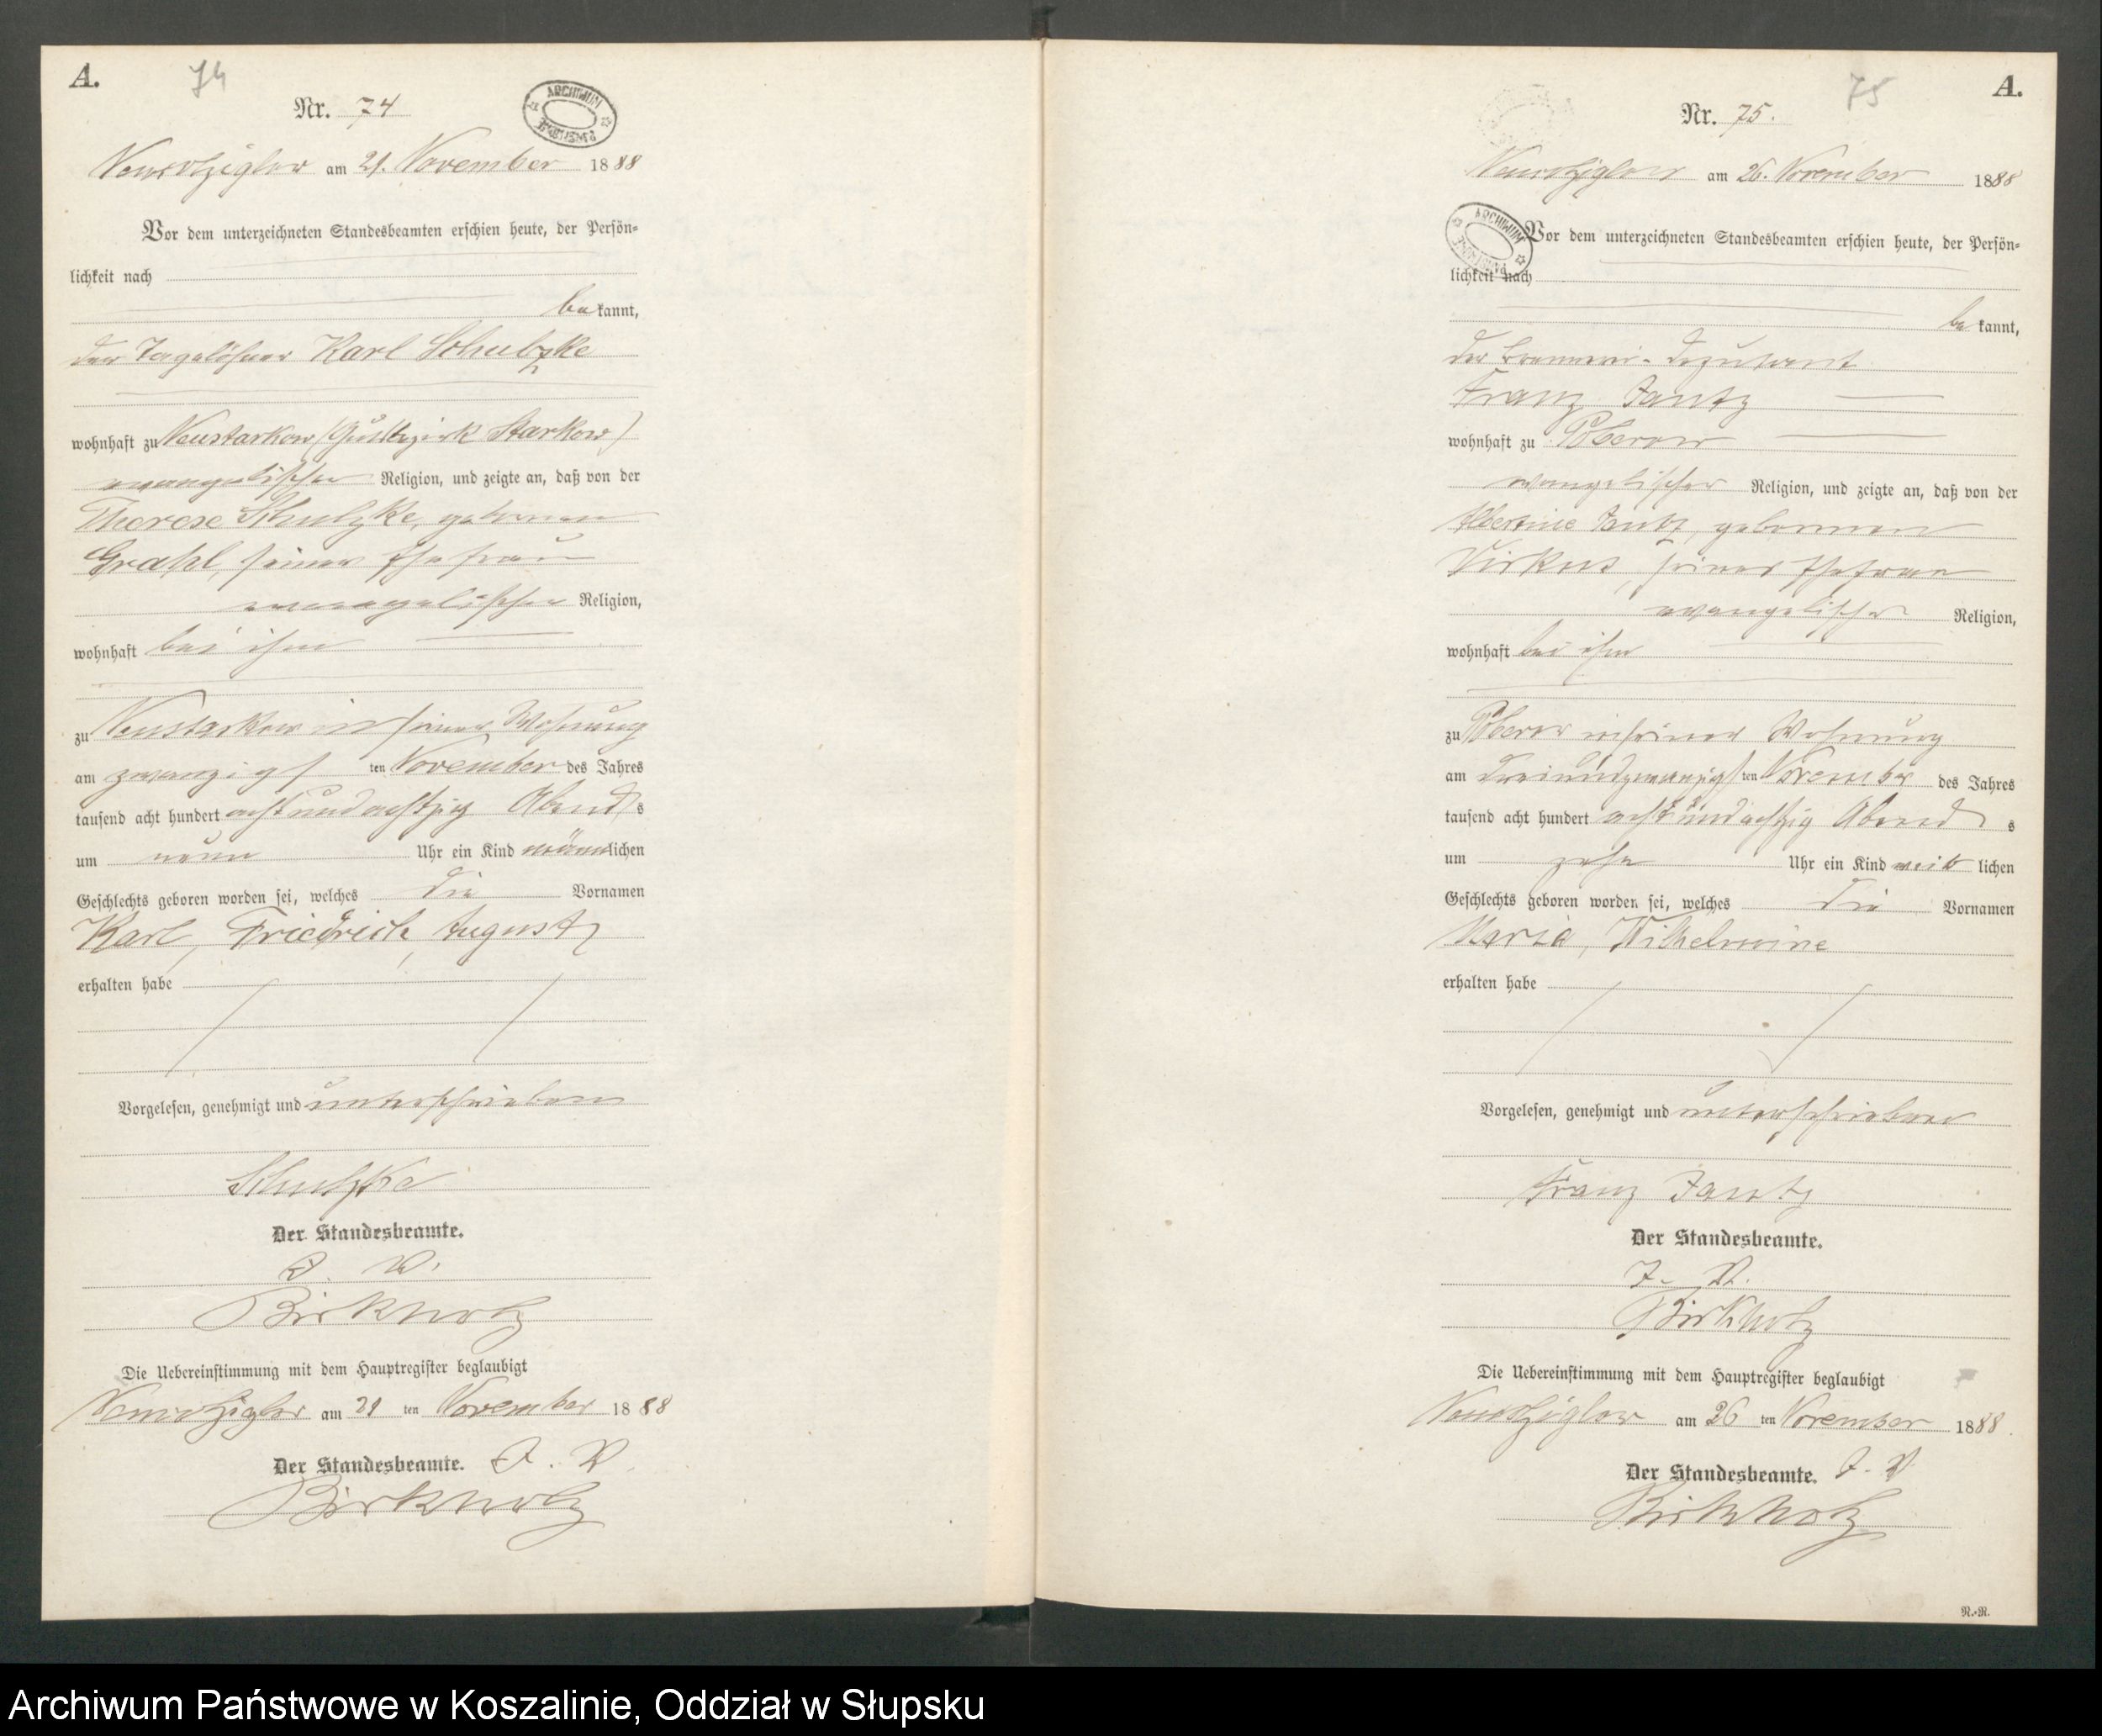 A.
74
Nr. 74
ARCHIWUM PAŃSTWOWE
am 21. November 1888
Vor dem unterzeichneten Standesbeamten erschien heute, der Persön-
lichkeit nach
bekannt,
der Tagelöhner Karl Schulzke
wohnhaft zu Neustarkow (Gutsbezirk Starkow)
evangelischer Religion, und zeigte an, daß von der
Therese Schulzke, geborenen
Grahl, seiner Ehefrau
evangelischer Religion,
wohnhaft bei ihm
zu Neustarkow in seiner Wohnung
am zwanzigsten November des Jahres
tausend acht hundert achtundachtzig Abends
um neun Uhr ein Kind männlichen
Geschlechts geboren worden sei, welches die Vornamen
Karl, Friedrich, August
erhalten habe
Vorgelesen, genehmigt und unterschrieben
Schulzke
Der Standesbeamte.
J. V.
Birkholz
Die Uebereinstimmung mit dem Hauptregister beglaubigt
am 21 ten November 1888
Der Standesbeamte. J. V.
Birkholz
75
A.
Nr. 75.
am 26. November 1888
ARCHIWUM PAŃSTWOWE
Vor dem unterzeichneten Standesbeamten erschien heute, der Persön-
lichkeit nach
bekannt,
der
Franz Jantz
wohnhaft zu Poberow
evangelischer Religion, und zeigte an, daß von der
Albertine Jantz, geborenen
Virkus, seiner Ehefrau
evangelischer Religion,
wohnhaft bei ihm
zu Poberow in seiner Wohnung
am dreiundzwanzigsten November des Jahres
tausend acht hundert achtundachtzig Abends
um zehn Uhr ein Kind weiblichen
Geschlechts geboren worden sei, welches die Vornamen
Maria, Wilhelmine
erhalten habe
Vorgelesen, genehmigt und unterschrieben
Franz Jantz
Der Standesbeamte.
J. V.
Birkholz
Die Uebereinstimmung mit dem Hauptregister beglaubigt
am 26 ten November 1888.
Der Standesbeamte. J. V.
Birkholz
N.-N.
Archiwum Państwowe w Koszalinie, Oddział w Słupsku